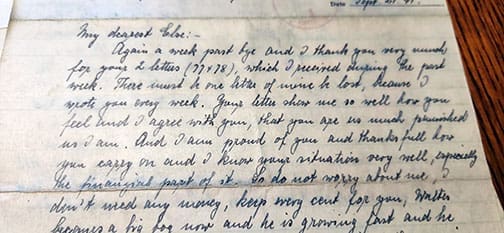 Date Sept. 21. 41.
My dearest Else:-
Again a week past bye and I thank you very much
for your 2 letters (77+78), which I received during the past
week. There must be one letter of mine be lost, because I
wrote you every week. Your letter show me so well how you
feel and I agree with you, that you are us much punished
us I am. And I am proud of you and thanksfull how
you carry on and I know your situation very well, especially
the financial part of it. So do not worry about me, I
don't need any money, keep every cent for you, Walter
becomes a big boy now and he is growing fast and he